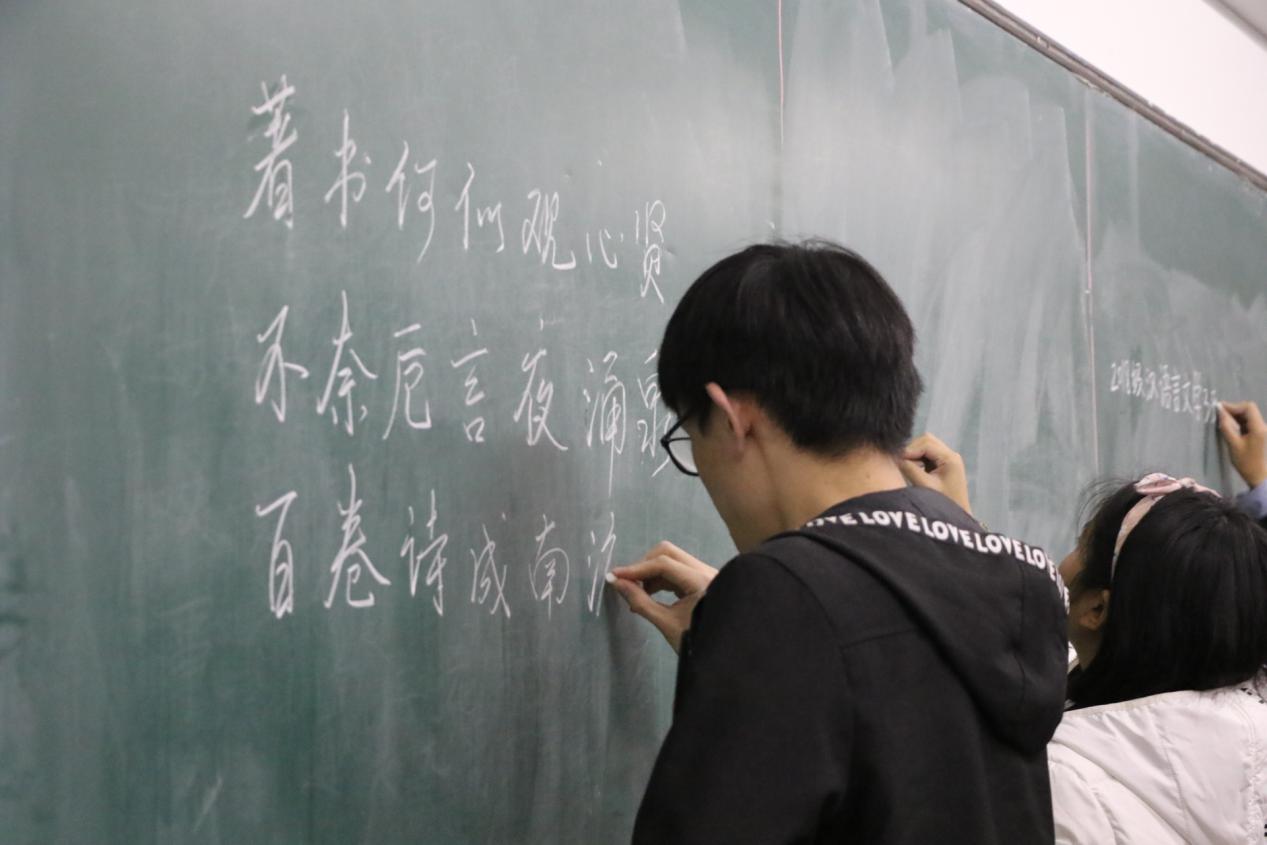 著书何似观心贤
不奈卮言夜涌泉
百卷诗成南
级汉语言文学
LOVE LOVE LOVE LOVE